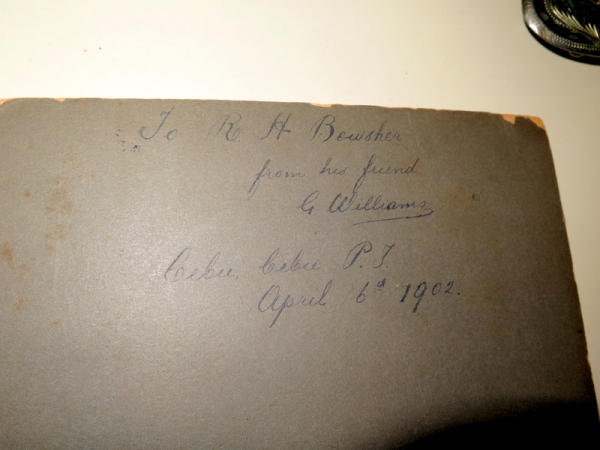 To R. H Bowsher
from his friend
G Williams
Cebu, Cebu P.I.
April 6th 1902.